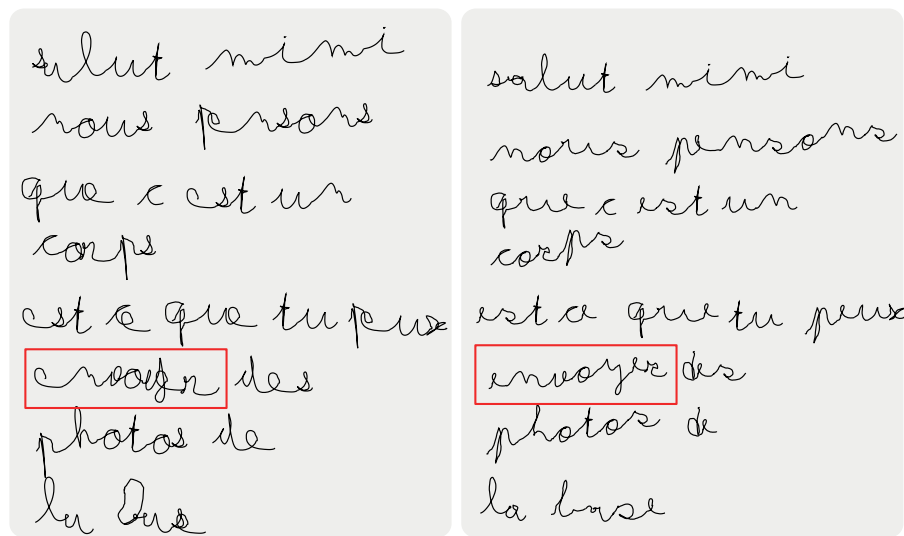 salut mimi
nous pensons
que c est un
corps
est ce que tu peux
envoyer des
photos de
la base
salut mimi
nous pensons
que c est un
corps
est ce que tu peux
envoyer des
photos de
la base